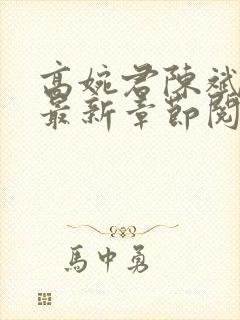 高婉君陳斌
最新章節閱
馬中勇